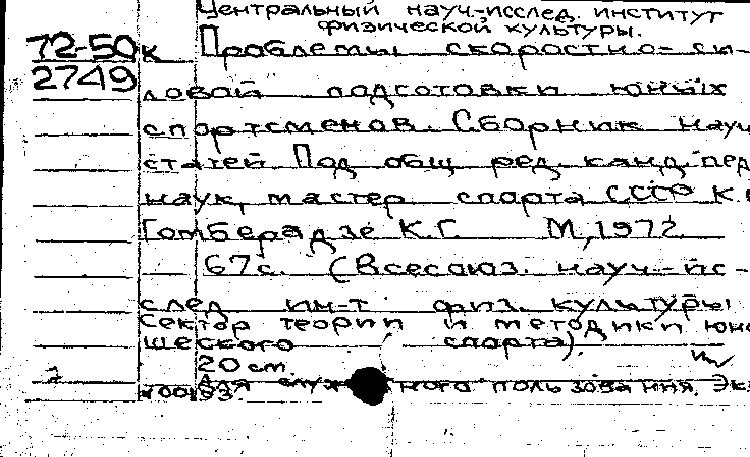 Центральный науч.-исслед. институт
физической культуры.
72-50к Проблемы скоростно-си-
2749 ловой подготовки юных
спортсменов. Сборник науч
статей Под общ ред. канд. пед
наук, мастер спорта СССР К Г
Гомберадзе К.Г. М., 1972.
67с. (Всесоюз. науч.-ис-
след ин-т физ. культуры
Сектор теории и методики юно
шеского спорта).
20 см.
Для служ ного пользования. Экз